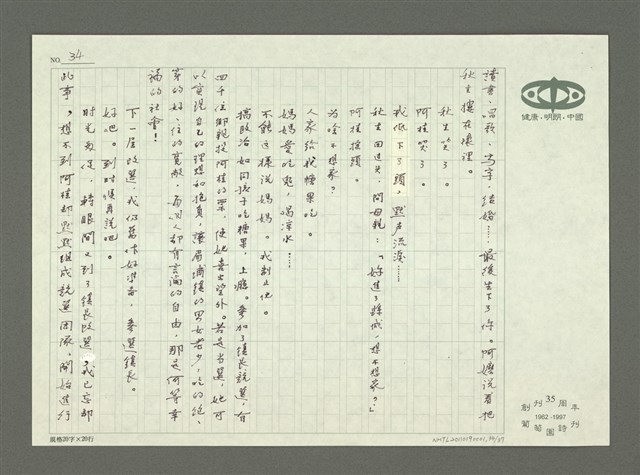 NO. 34
讀書、唱歌、寫字、結婚……最後生下了你。阿嬤說著把
秋生摟在懷裡。
秋生笑了。
阿桂笑了。
我低下了頭，默声流淚……
秋生回過头，問母親：「好進了縣城，想不想家？」
阿桂搖頭。
为啥不想家？
人家给我糖果吃。
媽媽愛吃鬼，喝凉水……
不能这樣説媽媽。我制止他。
搞政治如同孩子吃糖果，上癮。參加了鎮長競選，有
四千位鄉親投阿桂的票，使她喜出望外。若是当選，她可
以實現自己的理想和抱負，讓
的男女老少，吃的飽、
穿的好、住的寬敞，每個人都有言論的自由，那是何等幸
福的社會！
下一屆改選，我仍舊作好準備，參選鎮長。
好吧。到時候再説吧。
时光荏苒，轉眼間又到了鎮長改選，我已忘却
此事，想不到阿桂却默默組成競選团隊，開始進行
規格20字×20行
健康·明朗·中國
創刊35周年
1962-1997
葡萄園詩刊